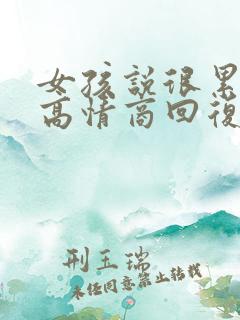 女孩說很累
高情商回復
刑玉瑞
未经同意禁止转载